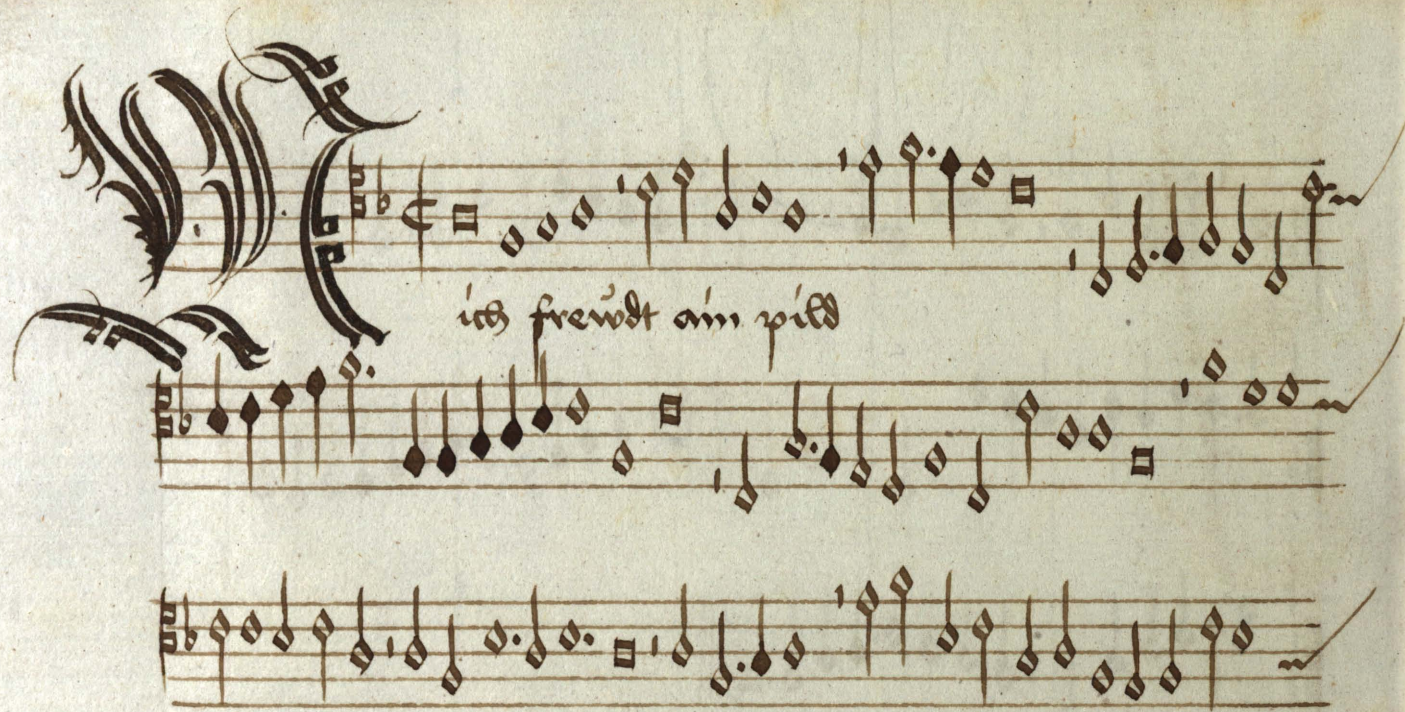 Mich frewdt ain pild